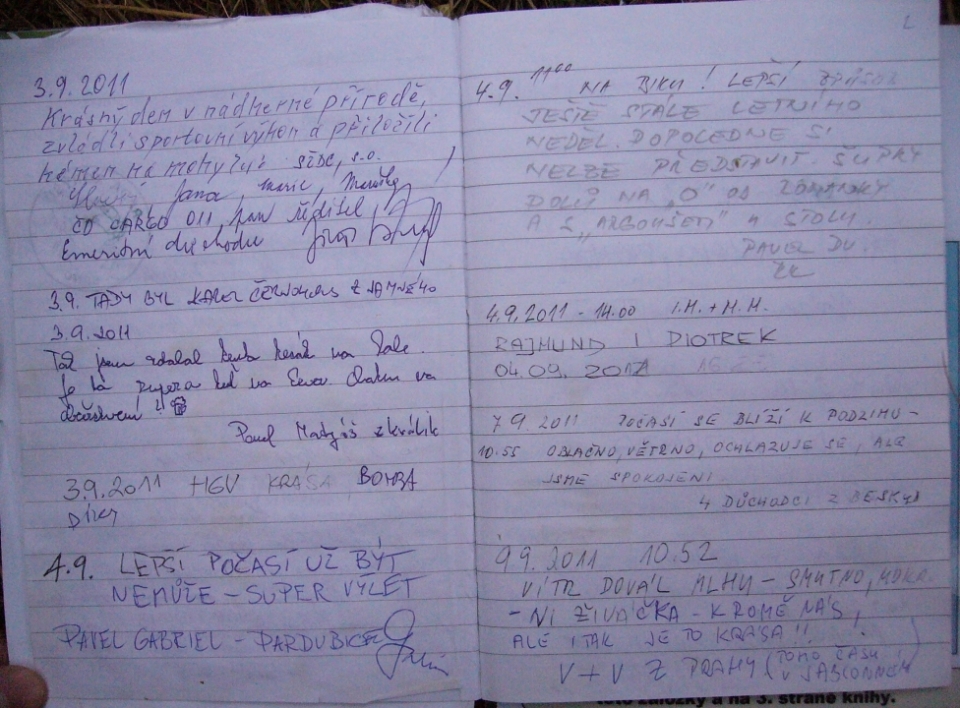 3.9.2011
Krásný den v nádherné přírodě,
zvládli sportovní výkon a přiložili
kámen na mohylu SŽDC, s.o.
Jana Marie,
ČD CARGO 011 pan ředitel
Emeritní duchodu
3.9. TADY BYL KAREL Z JAMNÉHO
3.9.2011
Též jsem
Je to na
občerstvení !!
Pavel z králík
3.9.2011 HGV KRÁSA BOMBA
Díky
4.9. LEPŠÍ POČASÍ UŽ BÝT
NEMŮŽE – SUPER VÝLET
PAVEL GABRIEL – PARDUBICE
2
4.9. 11⁰⁰ NA BIKU! LEPŠÍ ZPŮSOB
JEŠTĚ STÁLE LETNÍHO
NEDĚL. DOPOLEDNE SI
NELZE PŘEDSTAVIT. ŠUPKY
DOLŮ NA „O" OD
A S „ARGOUŠEM" K STOLU.
PAVEL DV.
4.9.2011 - 14.00 I.H. + H.H.
RAJMUND I PIOTREK
04.09.2011
7 9 2011 POČASÍ SE BLÍŽÍ K PODZIMU –
10.55 OBLAČNO, VĚTRNO, OCHLAZUJE SE, ALE
JSME SPOKOJENI
4 DŮCHODCI Z BESKYD
9.9.2011 10.52
VÍTR DOVÁL MLHU – SMUTNO, MOKR
– NI ŽIVÁČKA – KROMĚ NÁS,
ALE I TAK JE TO KRÁSA!!
V+V Z PRAHY (TOHO ČASU
V JABLONNÉM)
této záložky a na 3. straně knihy.